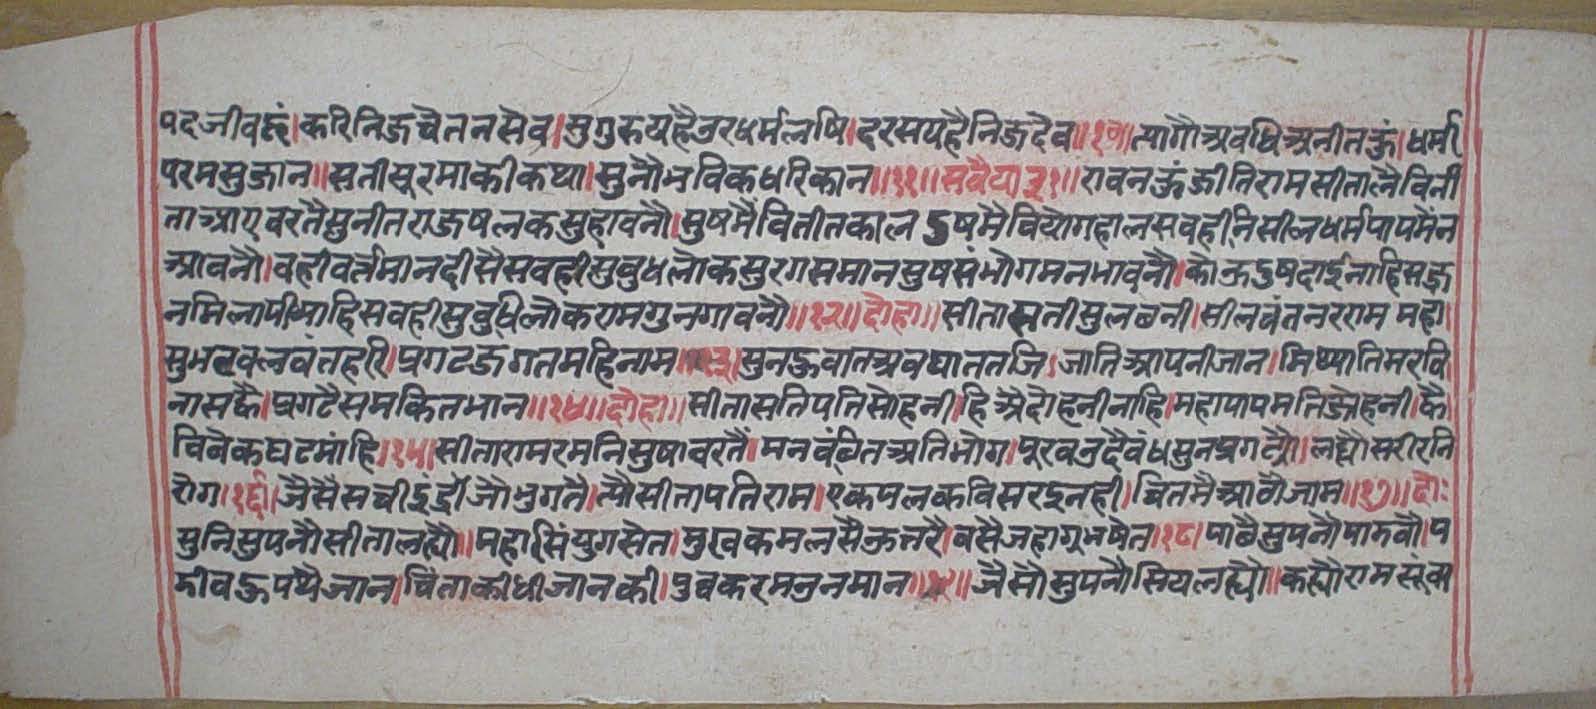 पद जीवहूं। करि निज चेतन सेव। सुगुरु यहै उर धर्म लषि। दरस यहै निज देव॥१०॥ त्यागौ अवधि अनीत कूं। धर्मा
परम सुजान॥ सती सूरमा की कथा। सुनौ भविक धरि कान॥११॥ सवैया ३१॥ रावन कूं जीति राम सीता लै विनी
ता आए वरतै सुनीत राज षलक सुहावनौ। सुषमै वितीत काल दुषमै वियोग हाल सवही नि सील धर्म पाप मै न
आवनौ। वही वर्तमान दीसै सवही सुवुध लोक सुरग समान सुष संभोग मन भावनौ। कोऊ दुषदाई नाहि सज्ज
न मिलापी आहि सवही सुवुधि लोक राम गुन गावनौ॥१२॥ दोहा॥ सीता सती सुलछनी। सीलवंत नर राम महा।
सुभट वलवंत हरी। प्रगट जगत महि नाम॥१३। सुनहु वात अवघात तजि। जाति आपनी जान। मिथ्यातिमर वि
नास कै। प्रगटै समकित भान॥१४॥ दोहा॥ सीता सति पति सोहनी। हिअै दोहनी नाहि। महापाप मति जोहनी। कै
विवेक घट मांहि।१५। सीता राम रमनि सुषा वरतै। मन वंछित अति भोग। पूरव उदै वंध सुन प्रगट्यौ। लह्यौ सरीर नि
रोग।१६। जैसै सची इंद्रो जौ भुगतै। त्यौ सीतापति राम। एक पलक विसरइ नही। चित मै आठौ जाम॥१७॥ दोः
सुनि सुपनौ सीता लह्यौ॥ महा सिंघ युग सेत। मुख कमल सै ऊतरै। वसै जहा गूभषेत।१८। पाछै सुपनौ पाछवौ। प
जीव रूपथै जान। चिंता की धी जानकी। पुव करम उनमान॥१९॥ जैसौ सुपनौ सिय लह्यौ॥ कह्यौ राम सूं वा